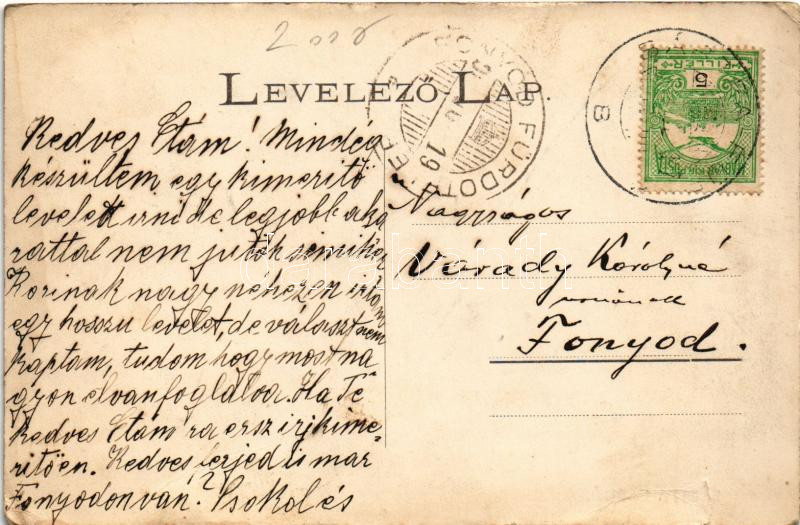 2000
LEVELEZŐ LAP.
FONYÓD FÜRDŐTELEP
19
B
5
FILLÉR
MAGYAR KIR. POSTA
Kedves Etám! Mindég
készültem egy kimeritő
levelet irni de legjobb aka
rattal nem jutok semihez
Korinak nagy nehezen irtam
egy hosszu levelet, de választ nem
kaptam, tudom hogy most na
gyon el van foglalva. Ha Te
kedves Etám ra ersz irj kime-
ritően. Kedves ferjed is mar
Fonyodon van? Csokol és
Nagyságos
Várady Károlyné
urnőnek
Fonyod.
darabanth